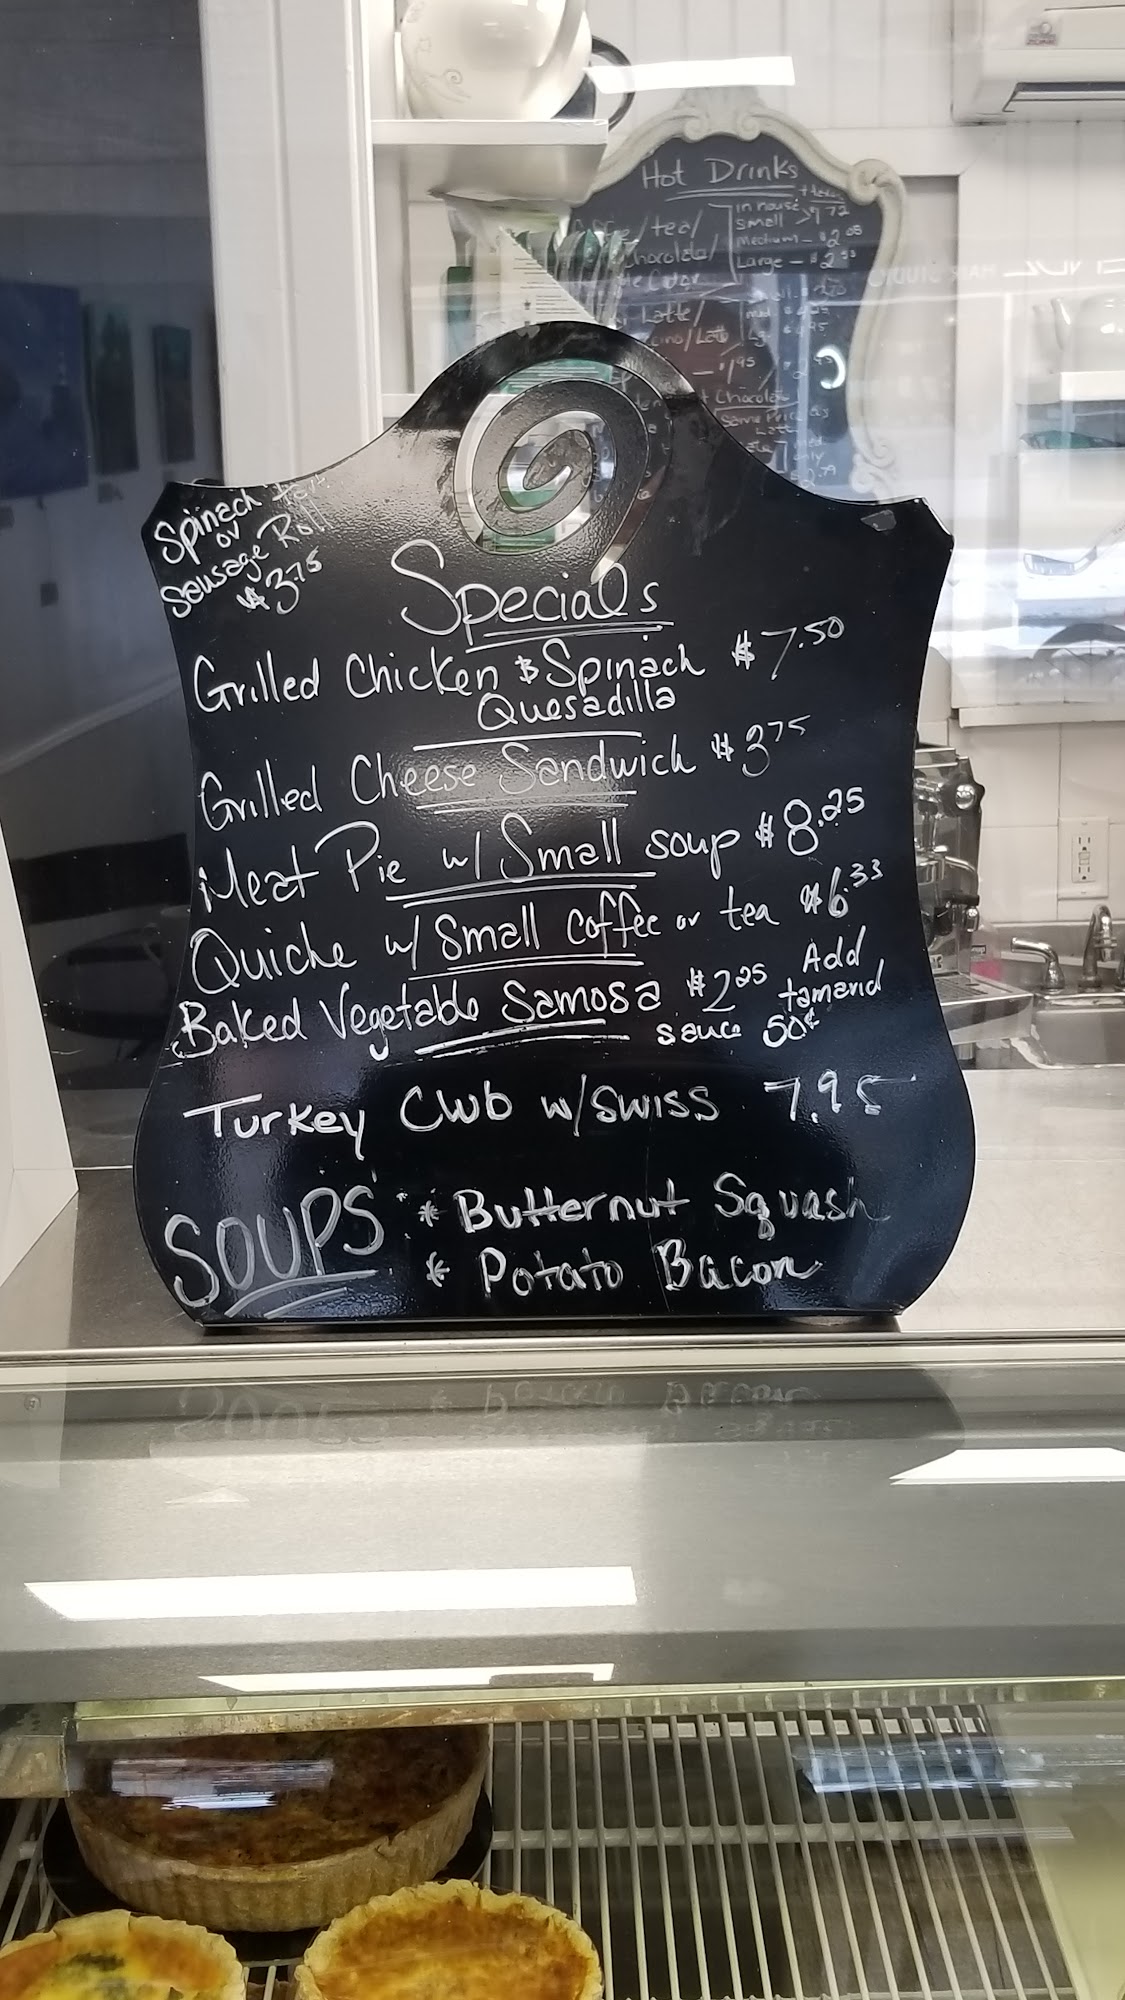 Hot Drinks
in house
small $1.72
tea/
Medium - $2.08
Chocolate/
Large - $2.53
Latte/
Same Price as
Spinach
or
Sausage Roll
$3.75
Specials
Grilled Chicken & Spinach $7.50
Quesadilla
Grilled Cheese Sandwich $3.75
Meat Pie w/ Small soup $8.25
Quiche w/ Small coffee or tea $6.33
Baked Vegetable Samosa $2.25 Add
tamarid
sauce 50¢
Turkey Club w/swiss 7.95
SOUPS * Butternut Squash
* Potato Bacon